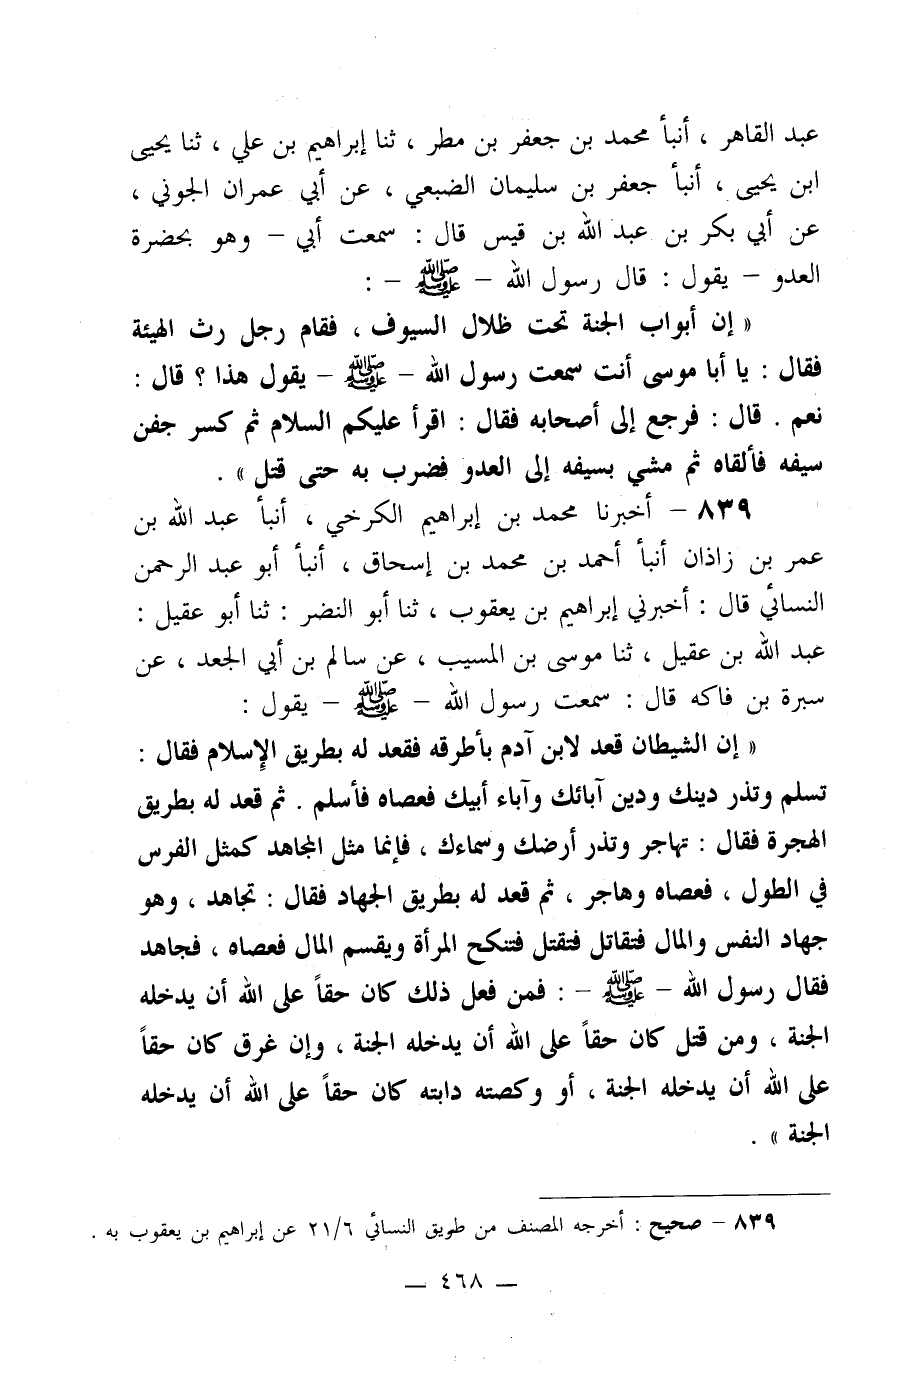 عبد القاهر ، أنبأ محمد بن جعفر بن مطر ، ثنا إبراهيم بن علي ، ثنا يحيى
ابن يحيى ، أنبأ جعفر بن سليمان الضبعي ، عن أبي عمران الجوني ،
عن أبي بكر بن عبد الله بن قيس قال : سمعت أبي – وهو بحضرة
العدو – يقول : قال رسول الله – ﷺ – :
« إن أبواب الجنة تحت ظلال السيوف ، فقام رجل رث الهيئة
فقال : يا أبا موسى أنت سمعت رسول الله – ﷺ – يقول هذا ؟ قال :
نعم . قال : فرجع إلى أصحابه فقال : اقرأ عليكم السلام ثم كسر جفن
سيفه فألقاه ثم مشي بسيفه إلى العدو فضرب به حتى قتل » .
٨٣٩ – أخبرنا محمد بن إبراهيم الكرخي ، أنبأ عبد الله بن
عمر بن زاذان أنبأ أحمد بن محمد بن إسحاق ، أنبأ أبو عبد الرحمن
النسائي قال : أخبرني إبراهيم بن يعقوب ، ثنا أبو النضر : ثنا أبو عقيل :
عبد الله بن عقيل ، ثنا موسى بن المسيب ، عن سالم بن أبي الجعد ، عن
سبرة بن فاكه قال : سمعت رسول الله – ﷺ – يقول :
« إن الشيطان قعد لابن آدم بأطرقه فقعد له بطريق الإسلام فقال :
تسلم وتذر دينك ودين آبائك وآباء أبيك فعصاه فأسلم . ثم قعد له بطريق
الهجرة فقال : تهاجر وتذر أرضك وسماءك ، فإنما مثل المجاهد كمثل الفرس
في الطول ، فعصاه وهاجر ، ثم قعد له بطريق الجهاد فقال : تجاهد ، وهو
جهاد النفس والمال فتقاتل فتقتل فتنكح المرأة ويقسم المال فعصاه ، فجاهد
فقال رسول الله – ﷺ – : فمن فعل ذلك كان حقاً على الله أن يدخله
الجنة ، ومن قتل كان حقاً على الله أن يدخله الجنة ، وإن غرق كان حقاً
على الله أن يدخله الجنة ، أو وكصته دابته كان حقاً على الله أن يدخله
الجنة » .
٨٣٩ – صحيح : أخرجه المصنف من طريق النسائي ٢١/٦ عن إبراهيم بن يعقوب به .
— ٤٦٨ —